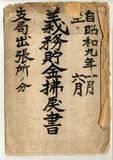 自昭和九年一月
至　　　六月
義務貯金拂戻書
支局出張所ノ分